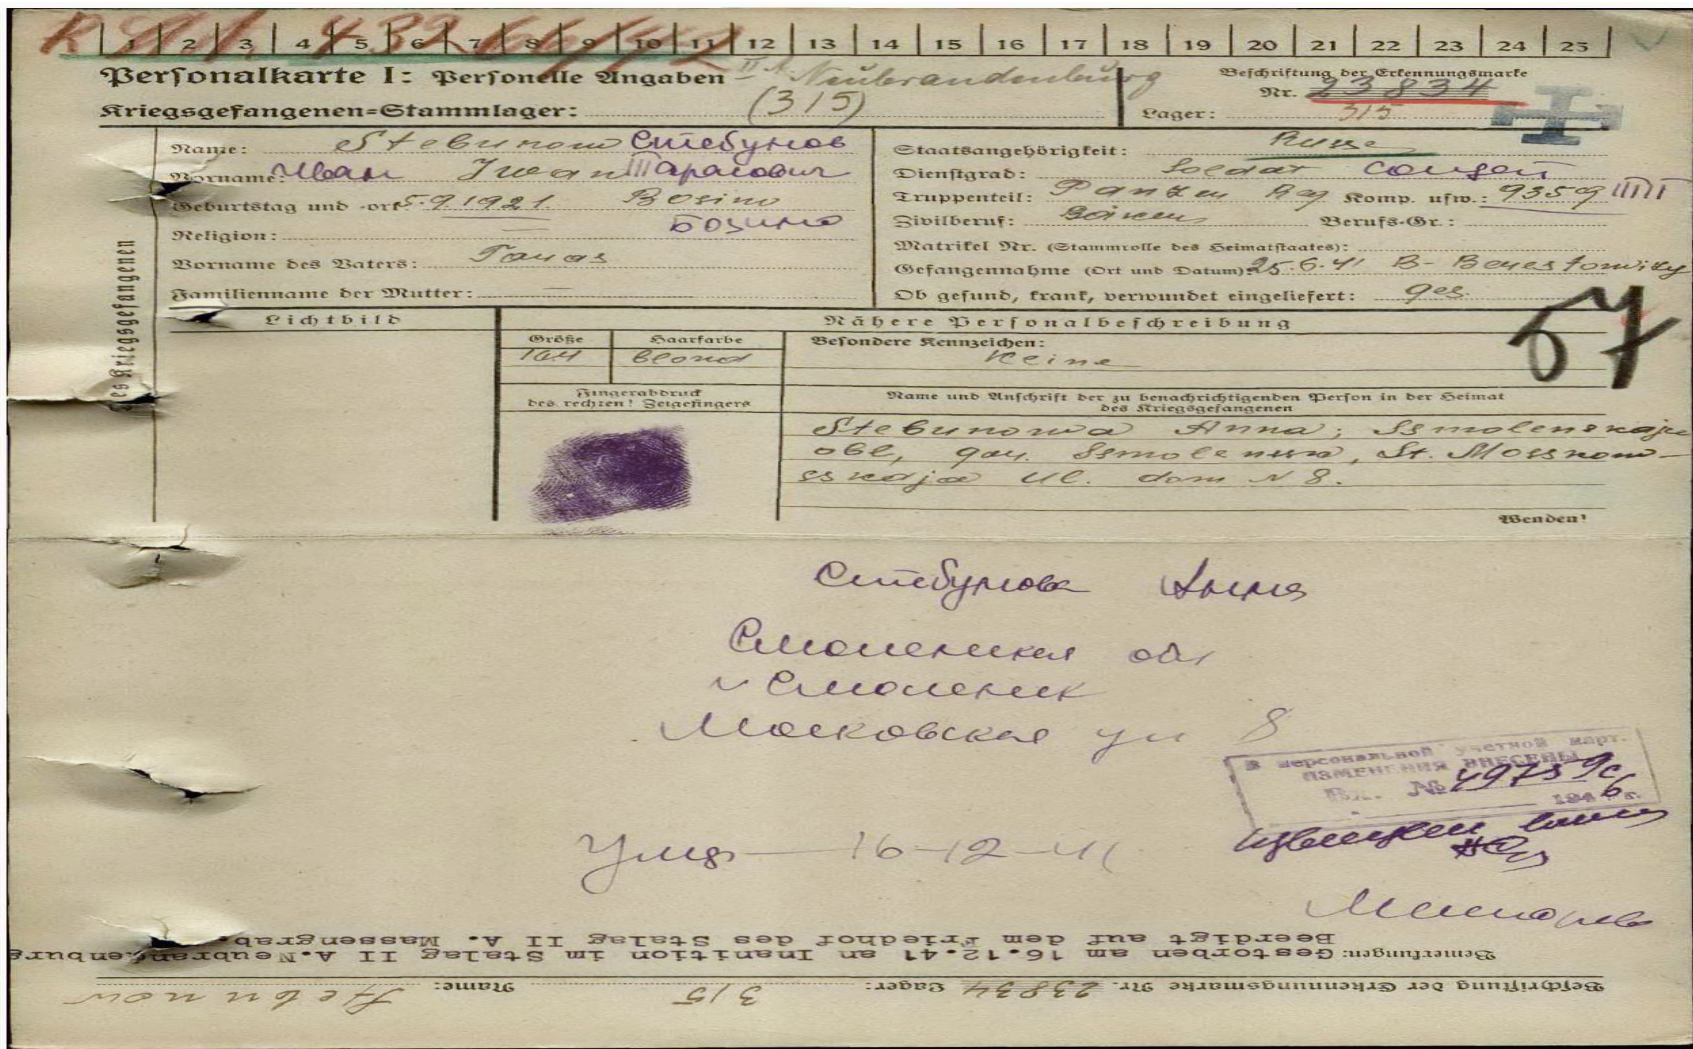 1 2 3 4 5 6 7 8 9 10 11 12 13 14 15 16 17 18 19 20 21 22 23 24 25
Personalkarte I: Personelle Angaben II A Neubrandenburg
Kriegsgefangenen=Stammlager: (315)
Beschriftung der Erkennungsmarke
Nr. 23834
Lager: 315
Name: Stebunow Стебунов
Vorname: Иван Iwan Тарасович
Geburtstag und -ort: 5.9.1921 Bosino
Бозино
Religion: —
Vorname des Vaters: Taras
Familienname der Mutter: —
Staatsangehörigkeit: Russe
Dienstgrad: Soldat солдат
Truppenteil: Panzer Reg Komp. usw.: 9359
Zivilberuf: Berufs-Gr.:
Matrikel Nr. (Stammrolle des Heimatstaates):
Gefangennahme (Ort und Datum) 25.6.41 B-Berestowizy
Ob gesund, krank, verwundet eingeliefert: ges.
des Kriegsgefangenen
57
Lichtbild
Nähere Personalbeschreibung
Größe Haarfarbe Besondere Kennzeichen:
164 blond Keine
Fingerabdruck
des rechten! Zeigefingers
Name und Anschrift der zu benachrichtigenden Person in der Heimat
des Kriegsgefangenen
Stebunowa Anna; Ssmolenskaja
obl, gor. Ssmolensk, St. Mosskow-
sskaja ul. dom N 8.
Wenden!
Стебунова Анна
Смоленская обл
г Смоленск
Московская ул 8
В персональной учетной карт.
ИЗМЕНЕНИЯ ВНЕСЕНЫ
Вх. № 49759с
1946 г.
Умер — 16-12-41
Bemerkungen: Gestorben am 16.12.41 an Inanition im Stalag II A.Neubrandenburg
Beerdigt auf dem Friedhof des Stalag II A. Massengrab.
Beschriftung der Erkennungsmarke Nr. 23834 Lager: 315 Name: Stebunow